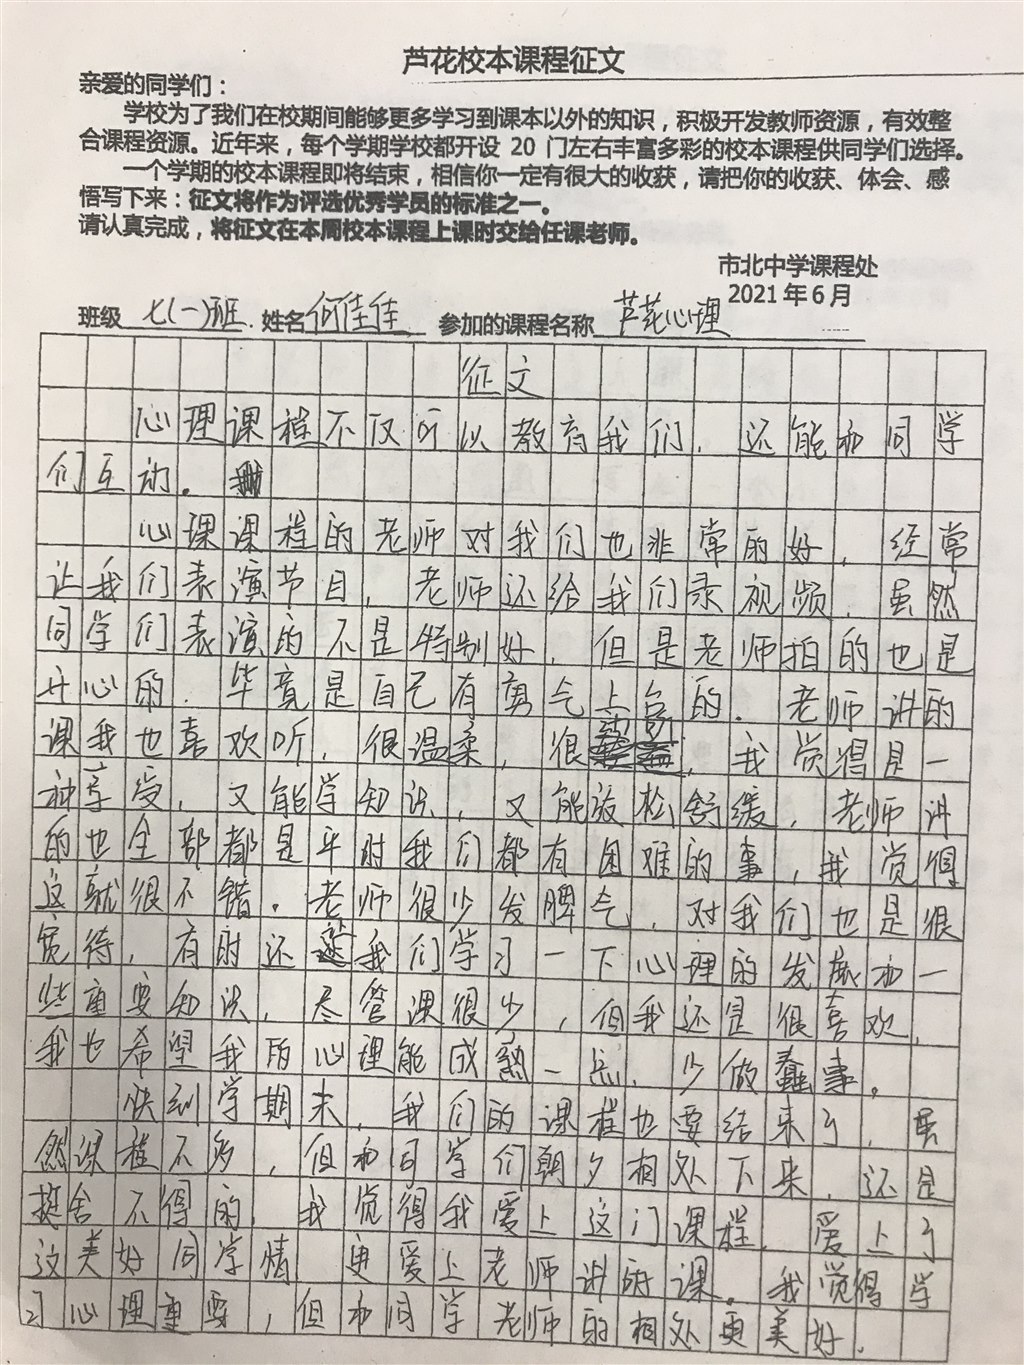 芦花校本课程征文
亲爱的同学们：
学校为了我们在校期间能够更多学习到课本以外的知识，积极开发教师资源，有效整
合课程资源。近年来，每个学期学校都开设 20 门左右丰富多彩的校本课程供同学们选择。
一个学期的校本课程即将结束，相信你一定有很大的收获，请把你的收获、体会、感
悟写下来：征文将作为评选优秀学员的标准之一。
请认真完成，将征文在本周校本课程上课时交给任课老师。
市北中学课程处
2021 年 6 月
班级 七(一)班 姓名 何佳佳 参加的课程名称 芦花心理
征文
心理课程不仅可以教育我们，还能和同学
们互动。
心课课程的老师对我们也非常的好，经常
让我们表演节目，老师还给我们录视频．虽然
同学们表演的不是特别好，但是老师拍的也是
开心的．毕竟是自己有勇气上台的．老师讲的
课我也喜欢听，很温柔，很，我觉得是一
种享受，又能学知识，又能放松舒缓，老师讲
的也全部都是平时我们都有困难的事，我觉得
这就很不错．老师很少发脾气，对我们也是很
宽待，有时还我们学习一下心理的发展和一
些重要知识，尽管课很少，但我还是很喜欢，
我也希望我的心理能成熟一点，少做蠢事。
快到学期末，我们的课程也要结束了，虽
然课程不多，但和同学们朝夕相处下来，还是
挺舍不得的，我觉得我爱上这门课程，爱上了
这美好同学情 更爱上老师讲的课。我觉得学
习心理重要，但和同学老师的相处更美好．